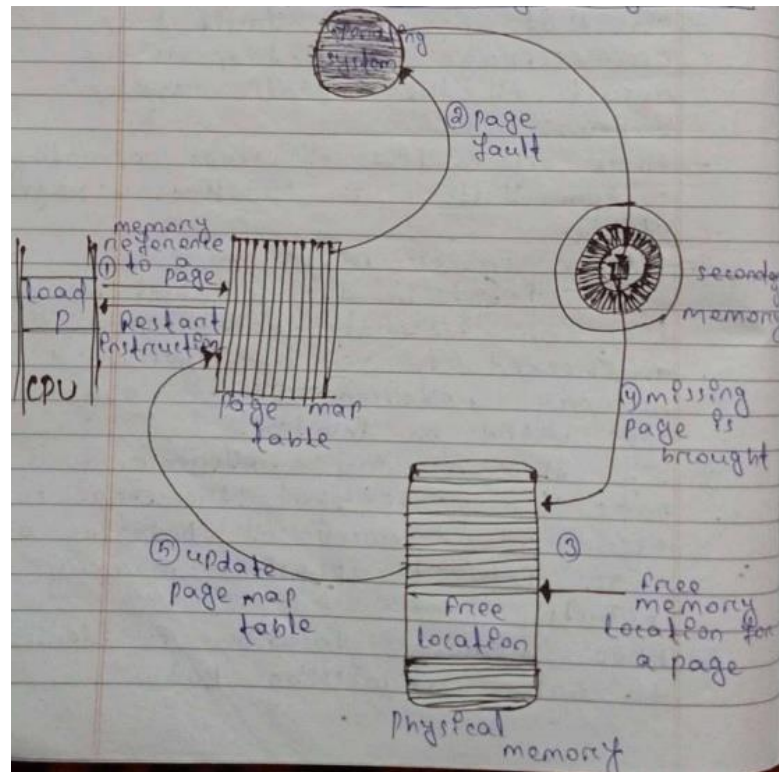 operating
system
② page
fault
memory
reference
① to a
page
load
P
Restart
instruction
CPU
page map
table
secondary
memory
④ missing
page is
brought
③
⑤ update
page map
table
free
location
free
memory
location for
a page
physical
memory